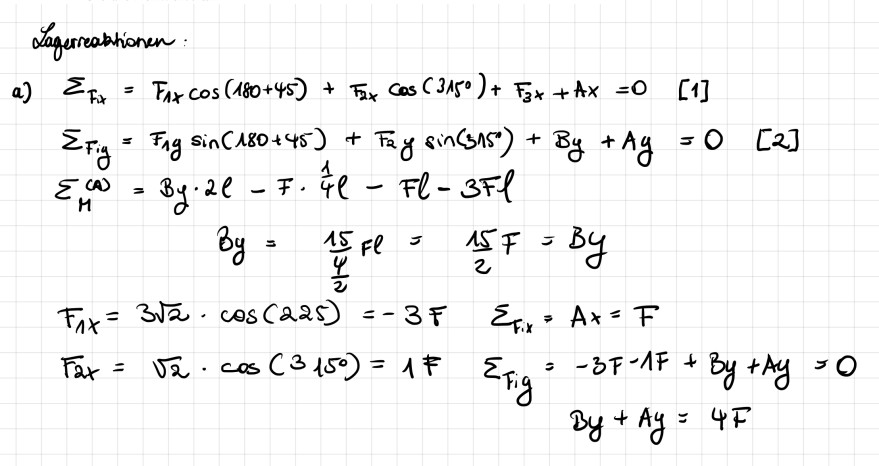 Lagerreaktionen:
a) Σ_Fix = F₁x cos(180+45) + F₂x cos(315°) + F₃x + Ax = 0 [1]
Σ_Fiy = F₁y sin(180+45) + F₂y sin(315°) + By + Ay = 0 [2]
Σ_M^(A) = By · 2l - F · 1/4 l - Fl - 3Fl
By = 15/4/2 Fl = 15/2 F = By
F₁x = 3√2 · cos(225) = -3F Σ_Fix = Ax = F
F₂x = √2 · cos(315°) = 1F Σ_Fiy = -3F-1F + By + Ay = 0
By + Ay = 4F